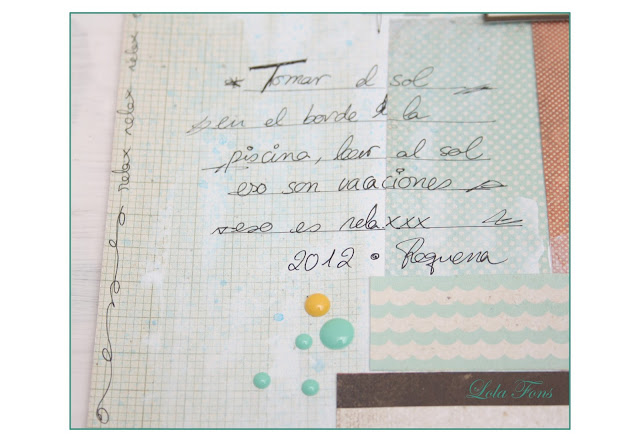 * Tomar el sol
en el borde d la
piscina, leer al sol
eso son vacaciones
eso es relaxxx
2012 • Requena
relax relax relax
Lola Fons